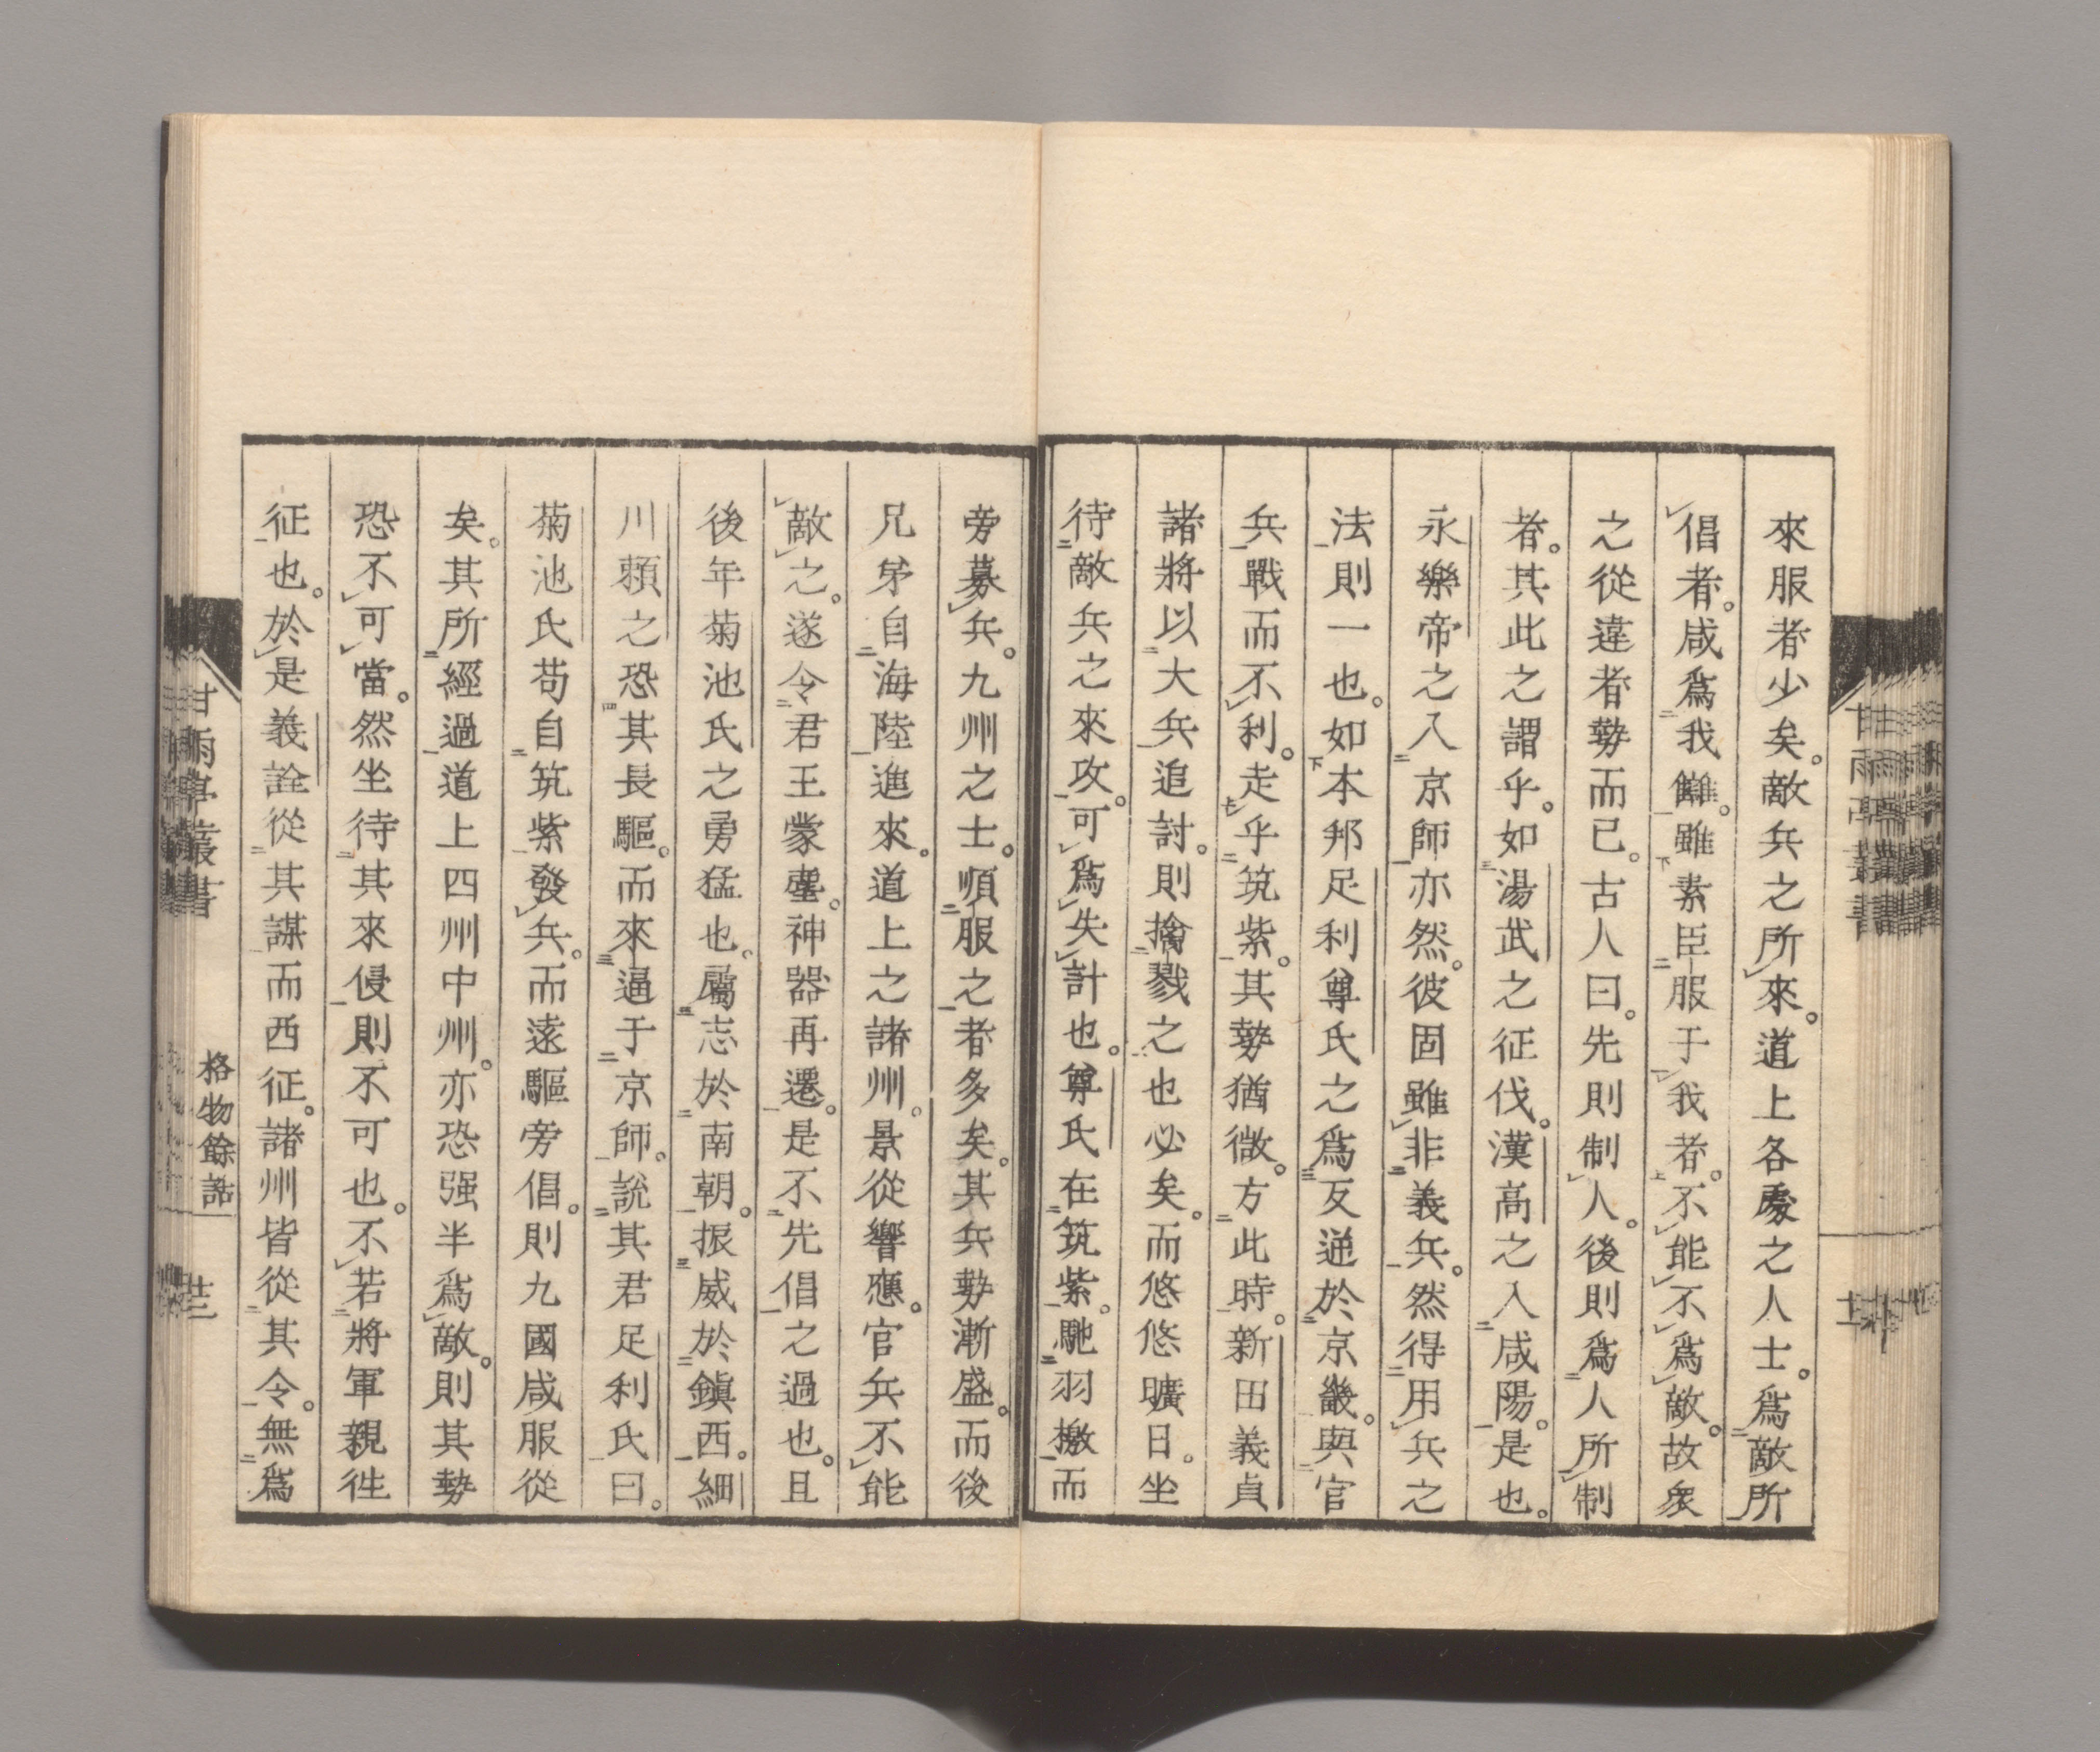 來服者少矣。敵兵之所來。道上各處之人士。爲敵所
倡者。咸爲我讎。雖素臣服于我者。不能不爲敵。故衆
之從違者勢而已。古人曰。先則制人。後則爲人所制
者。其此之謂乎。如湯武之征伐。漢高之入咸陽。是也。
永樂帝之入京師亦然。彼固雖非義兵。然得用兵之
法則一也。如本邦足利尊氏之爲反逆於京畿。與官
兵戰而不利。走乎筑紫。其勢猶微。方此時。新田義貞
諸將以大兵追討。則擒戮之也必矣。而悠悠曠日。坐
待敵兵之來攻。可爲失計也。尊氏在筑紫。馳羽檄而
旁募兵。九州之士。順服之者多矣。其兵勢漸盛。而後
兄弟自海陸進來。道上之諸州。景從響應。官兵不能
敵之。遂令君王蒙塵。神器再遷。是不先倡之過也。且
後年菊池氏之勇猛也。屬志於南朝。振威於鎭西。細
川頼之恐其長驅。而來逼于京師。說其君足利氏曰。
菊池氏苟自筑紫發兵。而遠驅旁倡。則九國咸服從
矣。其所經過道上四州中州。亦恐强半爲敵。則其勢
恐不可當。然坐待其來侵則不可也。不若將軍親徃
征也。於是義詮從其謀而西征。諸州皆從其令。無爲
甘雨亭叢書
格物餘話